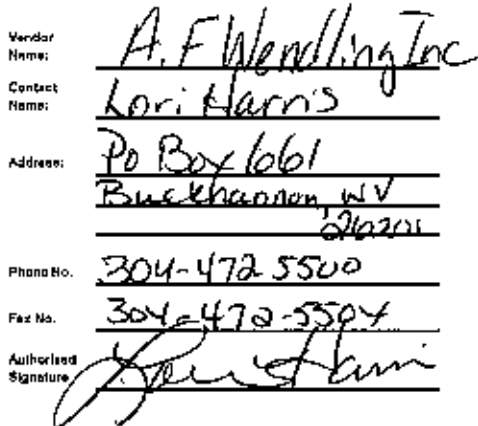 Vendor Name: A. F Wendling Inc
Contact Name: Lori Harris
Address: Po Box 661
Buckhannon, WV
26201
Phone No. 304-472 5500
Fax No. 304-472-5504
Authorized Signature Lori Harris